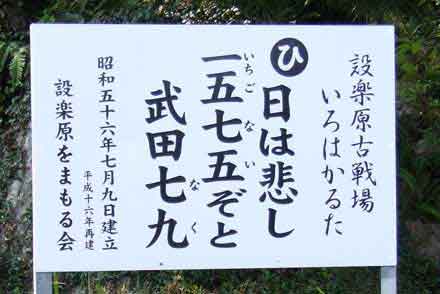 設楽原古戦場
いろはかるた
ひ
日は悲し
一五七五ぞと
いちごなごい
武田七九
なく
昭和五十六年七月九日建立
平成十六年再建
設楽原をまもる会